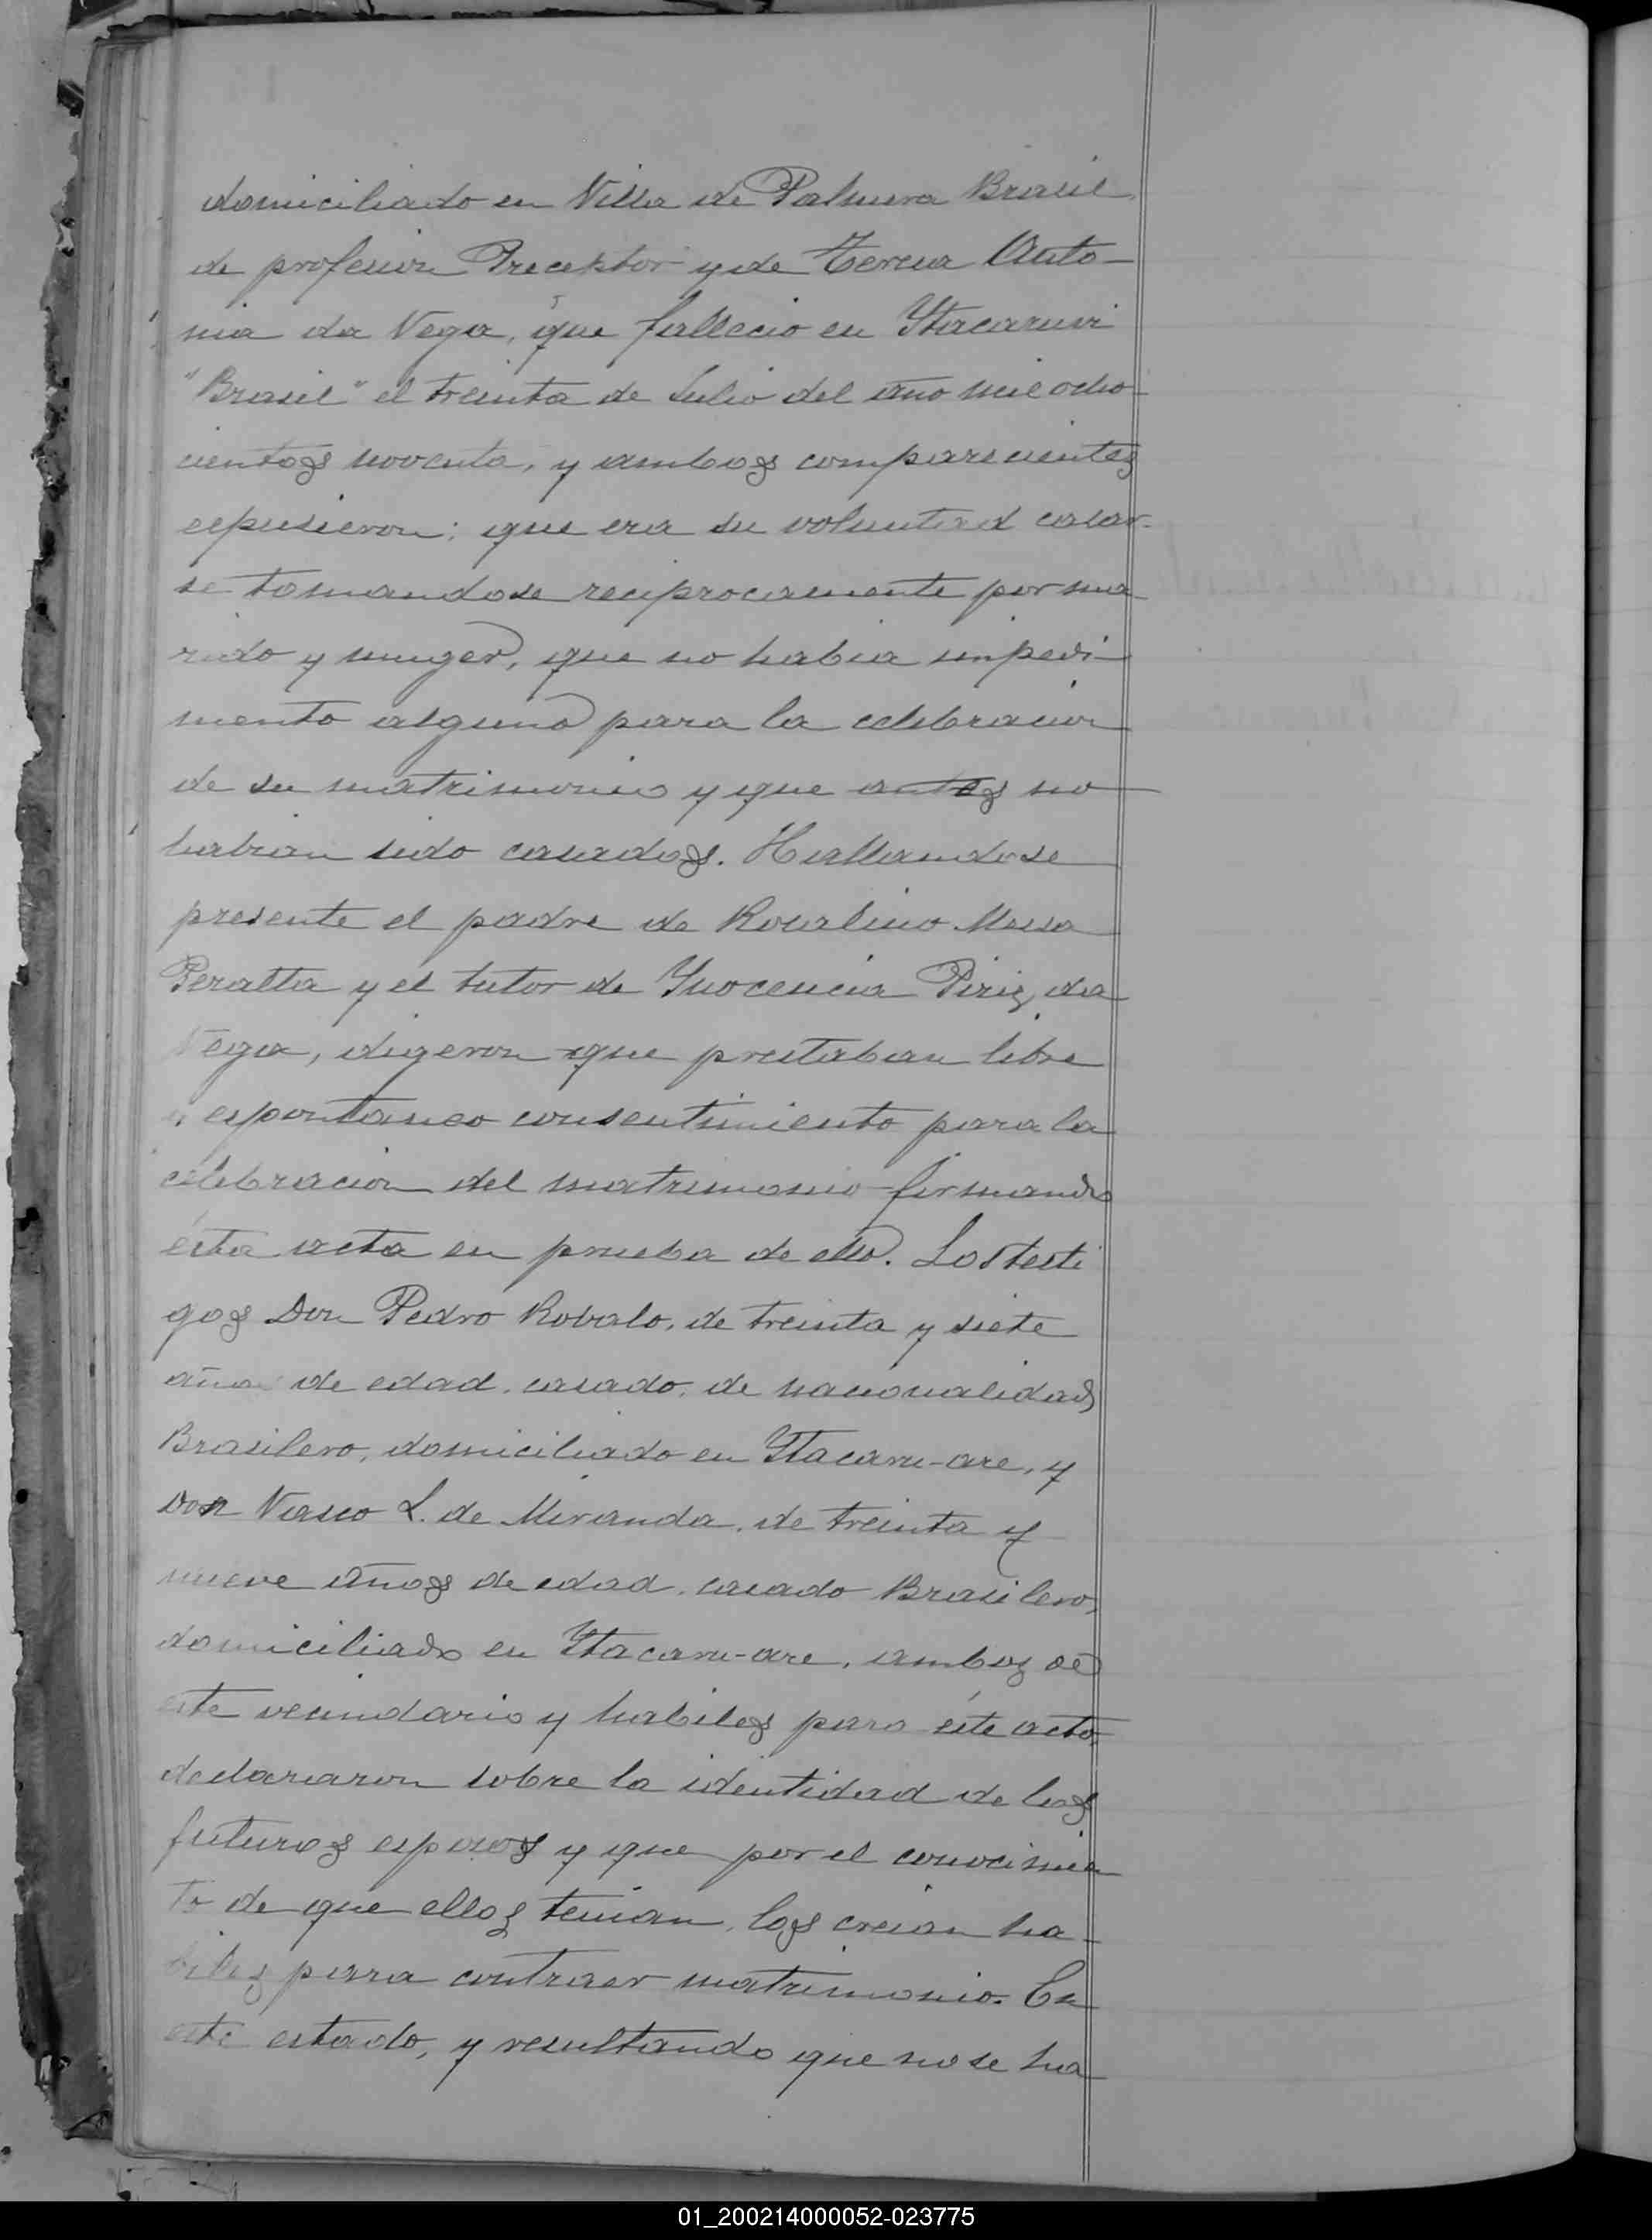 domiciliado en Villa de Palmera Brasil,
de profesion Preceptor y de Teresa Anto-
nia da Vega, que fallecio en Ytacaruvi
"Brasil" el treinta de Julio del año mil ocho-
cientos noventa, y ambos comparecientes
espusieron; que era su voluntad casar-
se tomandose reciprocamente por ma-
rido y muger, que no habia impedi-
mento alguno para la celebracion
de su matrimonio y que antes no
habian sido casados. Hallandose
presente el padre de Rosalino Messa
Peralta y el tutor de Ynocencia Piriz da
Vega, digeron que prestaban libre
y espontaneo consentimiento para la
celebracion del matrimonio firmando
ésta acta en prueba de ello. Los testi
gos Don Pedro Robalo, de treinta y siete
años de edad, casado, de nacionalidad
Brasilero, domiciliado en Ytacaru-are, y
Don Vasco L. de Miranda, de treinta y
nueve años de edad, casado Brasilero,
domiciliado en Ytacaru-are, ambos de
este vecindario y habiles para éste acto,
declararon sobre la identidad de los
futuros esposos y que por el conocimien
to de que ellos tenian, los creian ha-
biles para contraer matrimonio. En
este estado, y resultando que no se ha
01_200214000052-023775